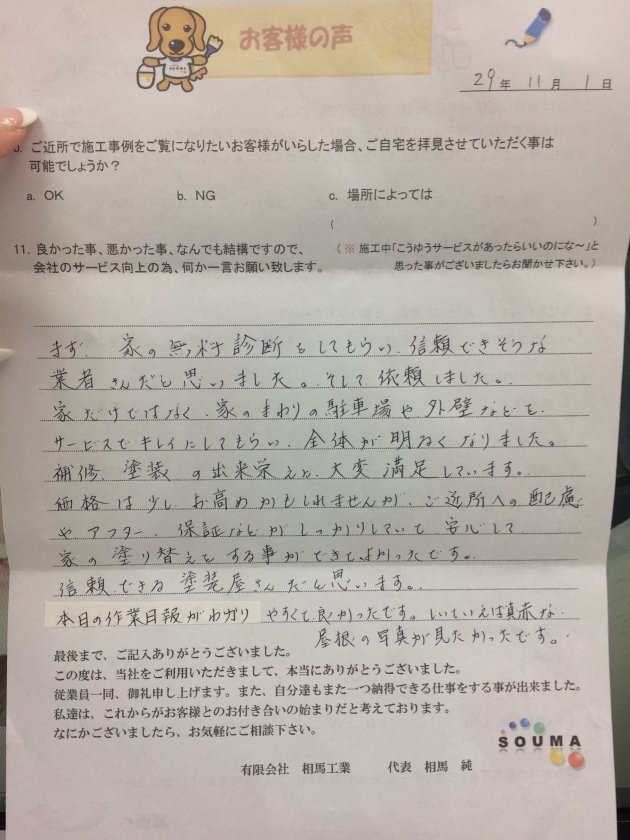 お客様の声
29年 11月 1日
ご近所で施工事例をご覧になりたいお客様がいらした場合、ご自宅を拝見させていただく事は
可能でしょうか？
a. OK b. NG c. 場所によっては
( )
11. 良かった事、悪かった事、なんでも結構ですので、 （ ※ 施工中「こうゆうサービスがあったらいいのにな〜」と
会社のサービス向上の為、何か一言お願い致します。 思った事がございましたらお聞かせ下さい。）
まず、家の無料診断をしてもらい、信頼できそうな
業者さんだと思いました。そして依頼しました。
家だけではなく、家のまわりの駐車場や外壁などを
サービスでキレイにしてもらい、全体が明るくなりました。
補修、塗装の出来栄えに、大変満足しています。
価格は少しお高めかもしれませんが、ご近所への配慮
やアフター、保証などがしっかりしていて安心して
家の塗り替えをする事ができてよかったです。
信頼できる塗装屋さんだと思います。
本日の作業日報がわかりやすくて良かったです。しいていえば真赤な
屋根の写真が見たかったです。
最後まで、ご記入ありがとうございました。
この度は、当社をご利用いただきまして、本当にありがとうございました。
従業員一同、御礼申し上げます。また、自分達もまた一つ納得できる仕事をする事が出来ました。
私達は、これからがお客様とのお付き合いの始まりだと考えております。
なにかございましたら、お気軽にご相談下さい。
SOUMA
有限会社 相馬工業 代表 相馬 純